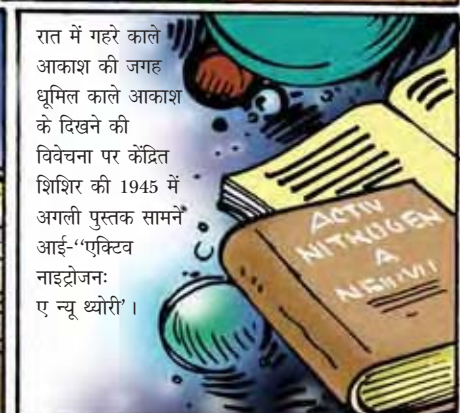 रात में गहरे काले
आकाश की जगह
धूमिल काले आकाश
के दिखने की
विवेचना पर केंद्रित
शिशिर की 1945 में
अगली पुस्तक सामने
आई-‘‘एक्टिव
नाइट्रोजनः
ए न्यू थ्योरी’।
ACTIV
NITROGEN
A